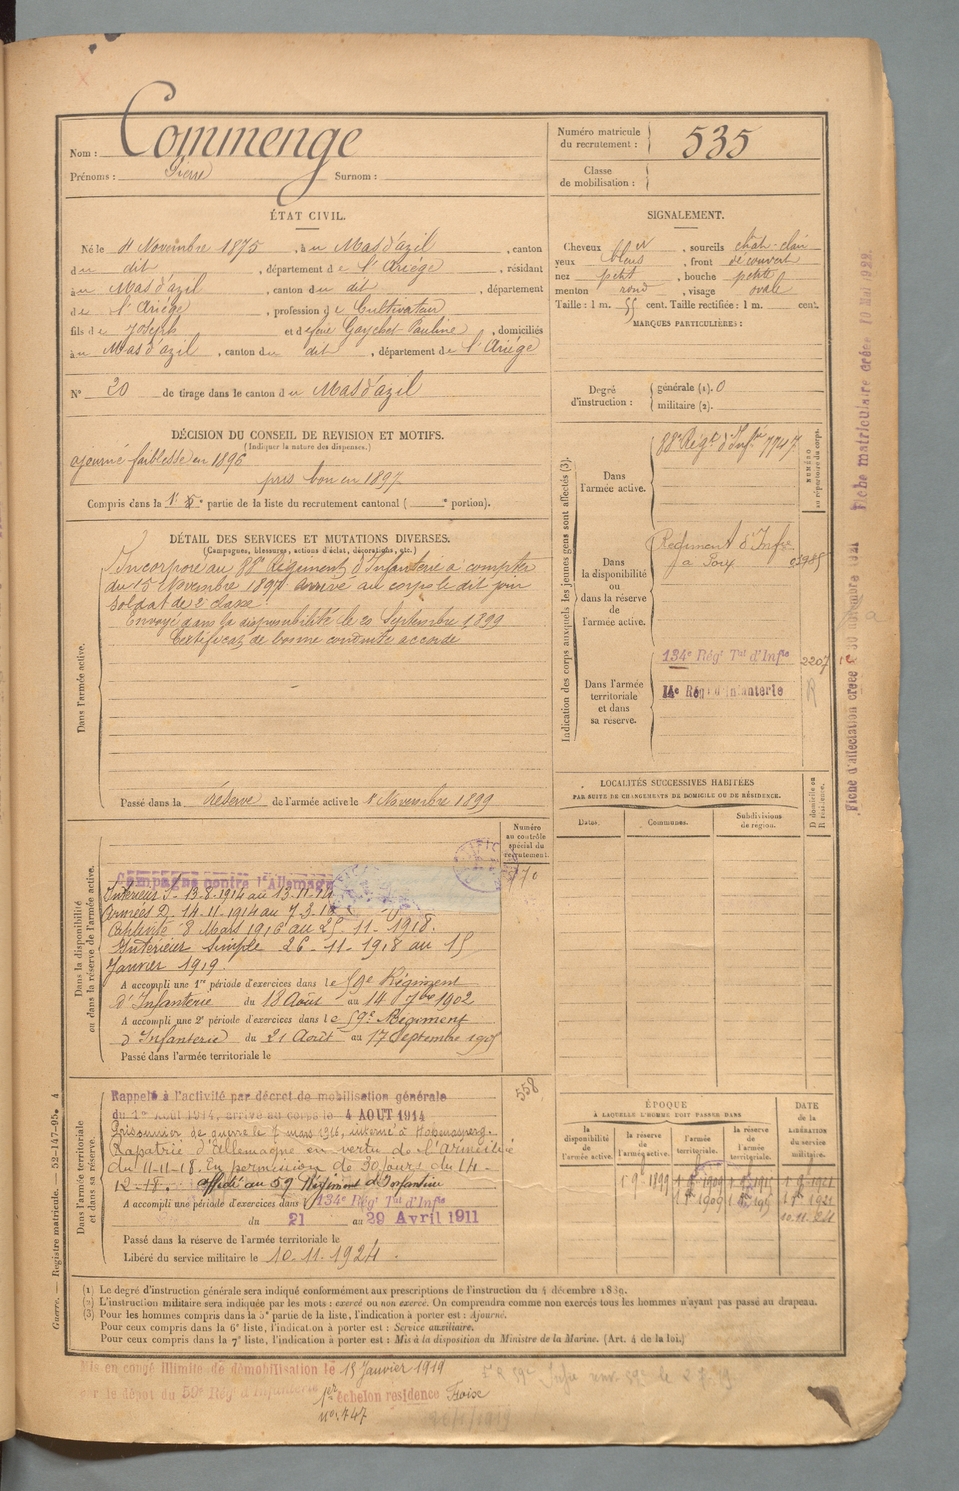 Nom : Commenge
Prénoms : Pierre Surnom :
Numéro matricule du recrutement : 535
Classe de mobilisation :
ÉTAT CIVIL.
Né le 11 Novembre 1875, à u Mas d'azil, canton
du dit, département de l'Ariége, résidant
à u Mas d'azil, canton du dit, département
de l'Ariége, profession de Cultivateur
fils de Joseph et de feue Gaychet Pauline, domiciliés
à u Mas d'azil, canton du dit, département de l'Ariége
N° 20 de tirage dans le canton du Mas d'azil
SIGNALEMENT.
Cheveux, sourcils chât-clair
yeux bleus, front découvert
nez petit, bouche petite
menton rond, visage ovale
Taille : 1 m. 55 cent. Taille rectifiée : 1 m. cent.
MARQUES PARTICULIÈRES :
Degré d'instruction : générale (1). 0
militaire (2).
DÉCISION DU CONSEIL DE REVISION ET MOTIFS.
(Indiquer la nature des dispenses.)
ajourné faiblesse en 1896
pris bon en 1897
Compris dans la partie de la liste du recrutement cantonal ( portion).
DÉTAIL DES SERVICES ET MUTATIONS DIVERSES.
(Campagnes, blessures, actions d'éclat, décorations, etc.)
Dans l'armée active.
Incorporé au 88e Régiment d'Infanterie à compter
du 15 Novembre 1897. Arrivé au corps le dit jour
soldat de 2e classe.
Envoyé dans la disponibilité le 20 Septembre 1899
Certificat de bonne conduite accordé
Passé dans la réserve de l'armée active le 1er Novembre 1899
Indication des corps auxquels les jeunes gens sont affectés (3).
NUMÉRO au répertoire du corps.
Dans l'armée active. 88e Régt d'Infrie 7747
Dans la disponibilité ou dans la réserve de l'armée active. Régiment d'Infie
à Foix
Dans l'armée territoriale et dans sa réserve. 134e Régt Tal d'Infie 2207
14e Rég d'Infanterie R
LOCALITÉS SUCCESSIVES HABITÉES
PAR SUITE DE CHANGEMENTS DE DOMICILE OU DE RÉSIDENCE.
Dates. Communes. Subdivisions de région. D domicile ou R résidence.
Dans la disponibilité ou dans la réserve de l'armée active.
Numéro au contrôle spécial du recrutement.
Campagne contre l'Allemagne
Intérieur S- 13-8-1914 au 13-11-14
Armées D, 14-11-1914 au 7-3-16
Captivité 8 Mars 1916 au 25-11-1918.
Intérieur simple 26-11-1918 au 15
Janvier 1919.
A accompli une 1re période d'exercices dans le 59e Régiment
d'Infanterie du 18 Août au 14 7bre 1902
A accompli une 2e période d'exercices dans le 59e Régiment
d'Infanterie du 21 Août au 17 Septembre 1905
Passé dans l'armée territoriale le
Dans l'armée territoriale et dans sa réserve.
558
Rappelé à l'activité par décret de mobilisation générale
du 1er Août 1914, arrivé au corps le 4 AOUT 1914
Prisonnier de guerre le 7 mars 1916, interné à Hohenasperg.
Rapatrié d'Allemagne en vertu de l'Armistice
du 11-11-18. En permission de 30 jours du 14-
12-18. affecté au 59 Régiment d'Infanterie
A accompli une période d'exercices dans l 134e Régt Tal d'Infie
du 21 au 29 Avril 1911
Passé dans la réserve de l'armée territoriale le
Libéré du service militaire le 10.11.1924.
ÉPOQUE
À LAQUELLE L'HOMME DOIT PASSER DANS
la disponibilité de l'armée active. la réserve de l'armée active. l'armée territoriale. la réserve de l'armée territoriale.
DATE de la LIBÉRATION du service militaire.
(1) Le degré d'instruction générale sera indiqué conformément aux prescriptions de l'instruction du 4 décembre 1889.
(2) L'instruction militaire sera indiquée par les mots : exercé ou non exercé. On comprendra comme non exercés tous les hommes n'ayant pas passé au drapeau.
(3) Pour les hommes compris dans la 5e partie de la liste, l'indication à porter est : Ajourné.
Pour ceux compris dans la 6e liste, l'indication à porter est : Service auxiliaire.
Pour ceux compris dans la 7e liste, l'indication à porter est : Mis à la disposition du Ministre de la Marine. (Art. 4 de la loi.)
Guerre. — Registre matricule. — 52-147-95. 4
Mis en congé illimité de démobilisation le 15 Janvier 1919
par le dépôt du 59e Rég d'Infanterie 1er échelon résidence Foix
n° 747
Fiche matriculaire créée 10 Mai 1922.
Fiche d'affectation créée 30 novembre 1921